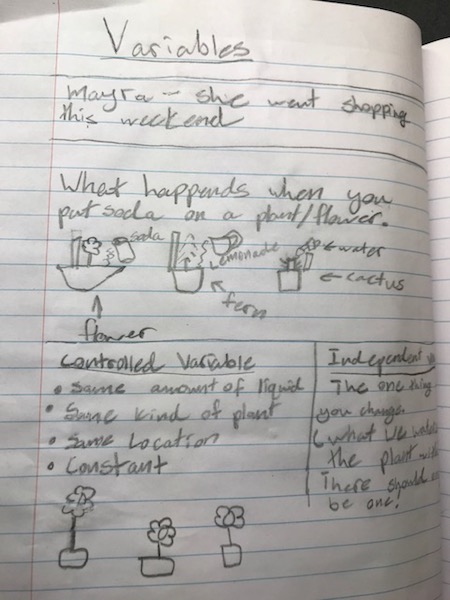 Variables
Mayra - she went shopping
this weekend
What happends when you
put soda on a plant/flower.
soda
lemonade
water
cactus
fern
flower
Controlled Variable
• Same amount of liquid
• Same kind of plant
• Same Location
• Constant
Independent
The one thing
you change
(what we
the plant
There should
be one.